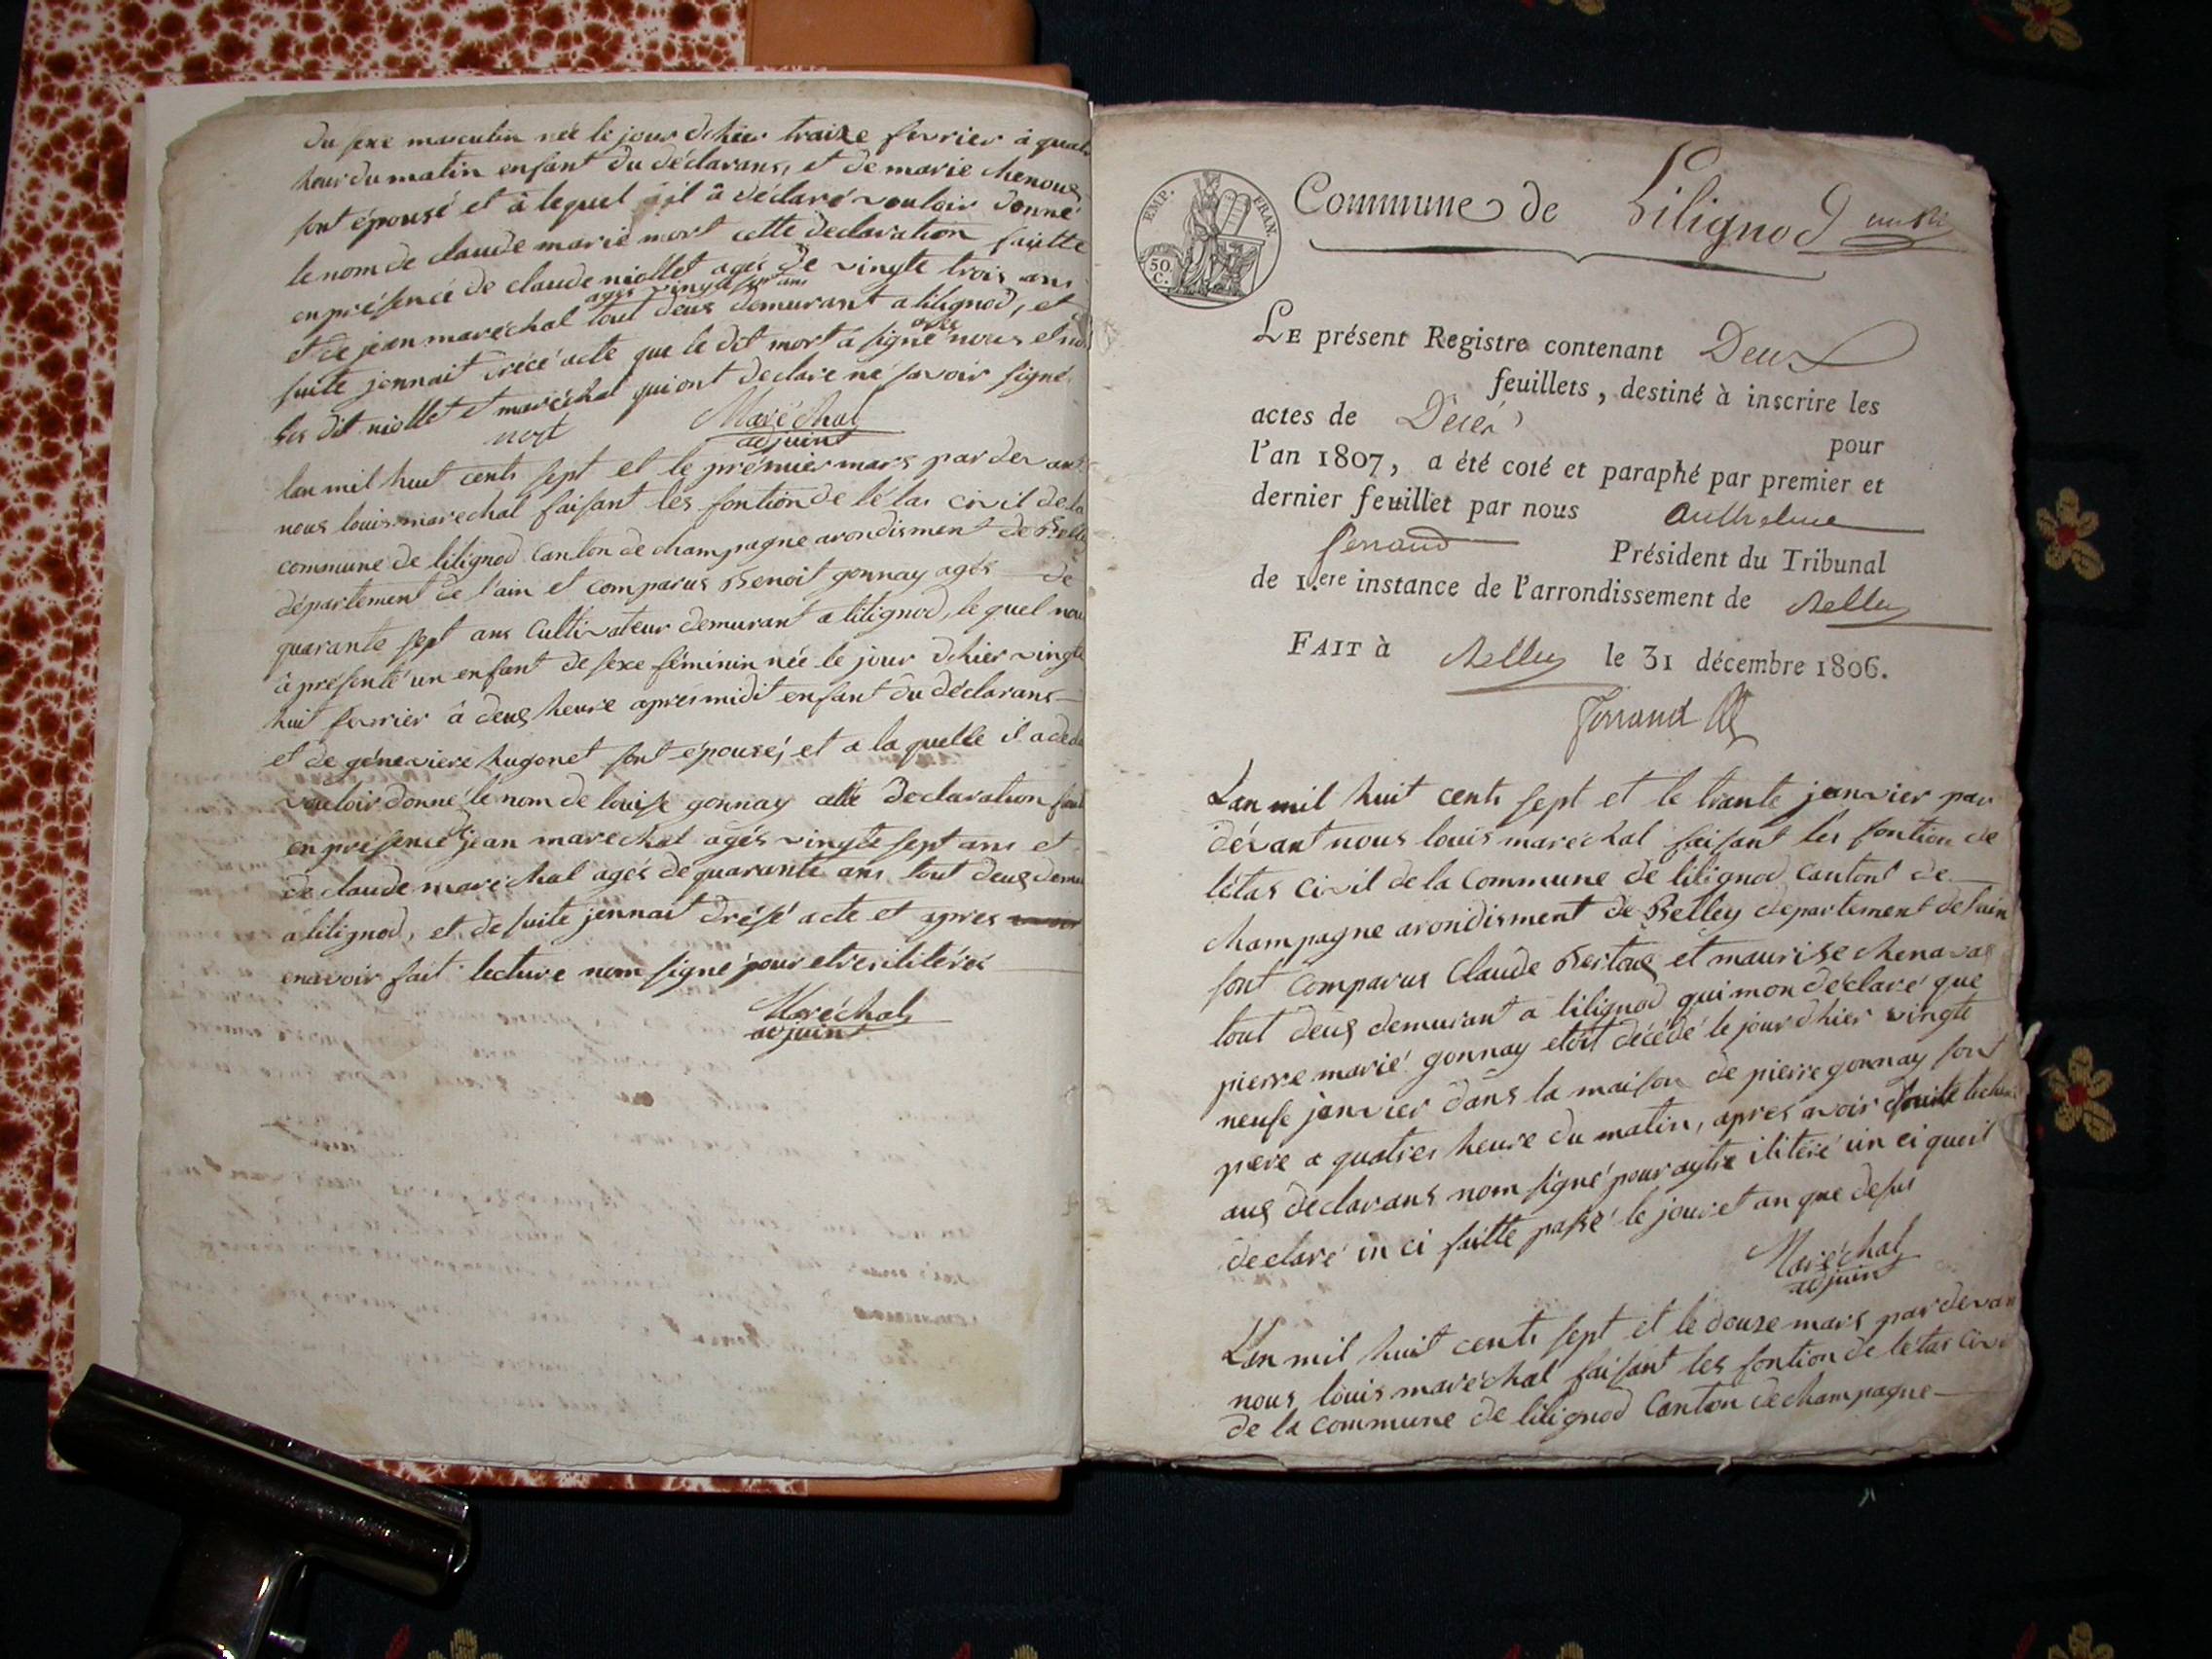 du sexe masculin née le jour dchier traize fevrier à quatr
heur du matin enfant du déclarans, et de marie chenoug
sont épousé et à lequel il à déclaré vouloir donné
le nom de claude marie mort cette declaration faitte
en présence de claude niollet agés de vingte trois ans
agés vingt sept ans
et de jean maréchal tout deus demurant a lilignod, et
suite jennait drécé acte que le dit mort a signé avec nous et non
les dit niollet et maréchal qui ont declare ne savoir signé
mort Maréchal
adjuint
lan mil huit cents sept et le prémier mars par devant
nous louis marechal faisant les fontion de létas civil de la
commune de lilignod Canton de champagne arondisment de Belle
département de l'ain et comparus Benoit gonnay agés de
quarante sept ans Cultivateur demurant a lilignod, le quel nou
à présenté un enfant de sexe féminin née le jour dhier vingte
huit fevrier à deug heure aprèsmidit enfant du déclarans
et de génevieve hugonet sont épousé, et a la quelle il a decla
vouloir donné le nom de louise gonnay cette declaration fait
en présence de jean marechal agés vingte sept ans et
de claude maréchal agés de quarante ans tout deug demu
a lilignod, et de suite jennait drésé acte et apres
en avoir fait lecture nom signé pour etres ilitérés
Maréchal
adjuint
EMP. FRAN.
50.
C.
Commune de Lilignod
LE présent Registre contenant Deux
feuillets, destiné à inscrire les
actes de Décés pour
l'an 1807, a été coté et paraphé par premier et
dernier feuillet par nous Anthelme
ferrand Président du Tribunal
de 1.ere instance de l'arrondissement de Belley
FAIT à Belley le 31 décembre 1806.
Ferrand
Lan mil huit cents sept et le trante janvier par
dévant nous louis maréchal faisant les fontion de
létas Civil de la Commune de lilignod Cantont de
champagne arondisment de Belley département de lain
sont Comparus Claude Bertoug et maurise chenavas
tout deug demurant a lilignod qui mon déclaré que
pierre marié gonnay etoit décédé le jour dhier vingte
neufe janvier dans la maison de pierre gonnay sont
pere a quatres heure du matin, apres avoir faitte lectur
aug déclarans nom signé pour aytre ilitéré in ci queil
declaré in ci faitte passé le jour et an que desus
Maréchal
adjuint
Lan mil huit cents sept et le douze mars par devan
nous louis maréchal faisant les fontion de létas Civi
de la commune de lilignod Canton de champagne